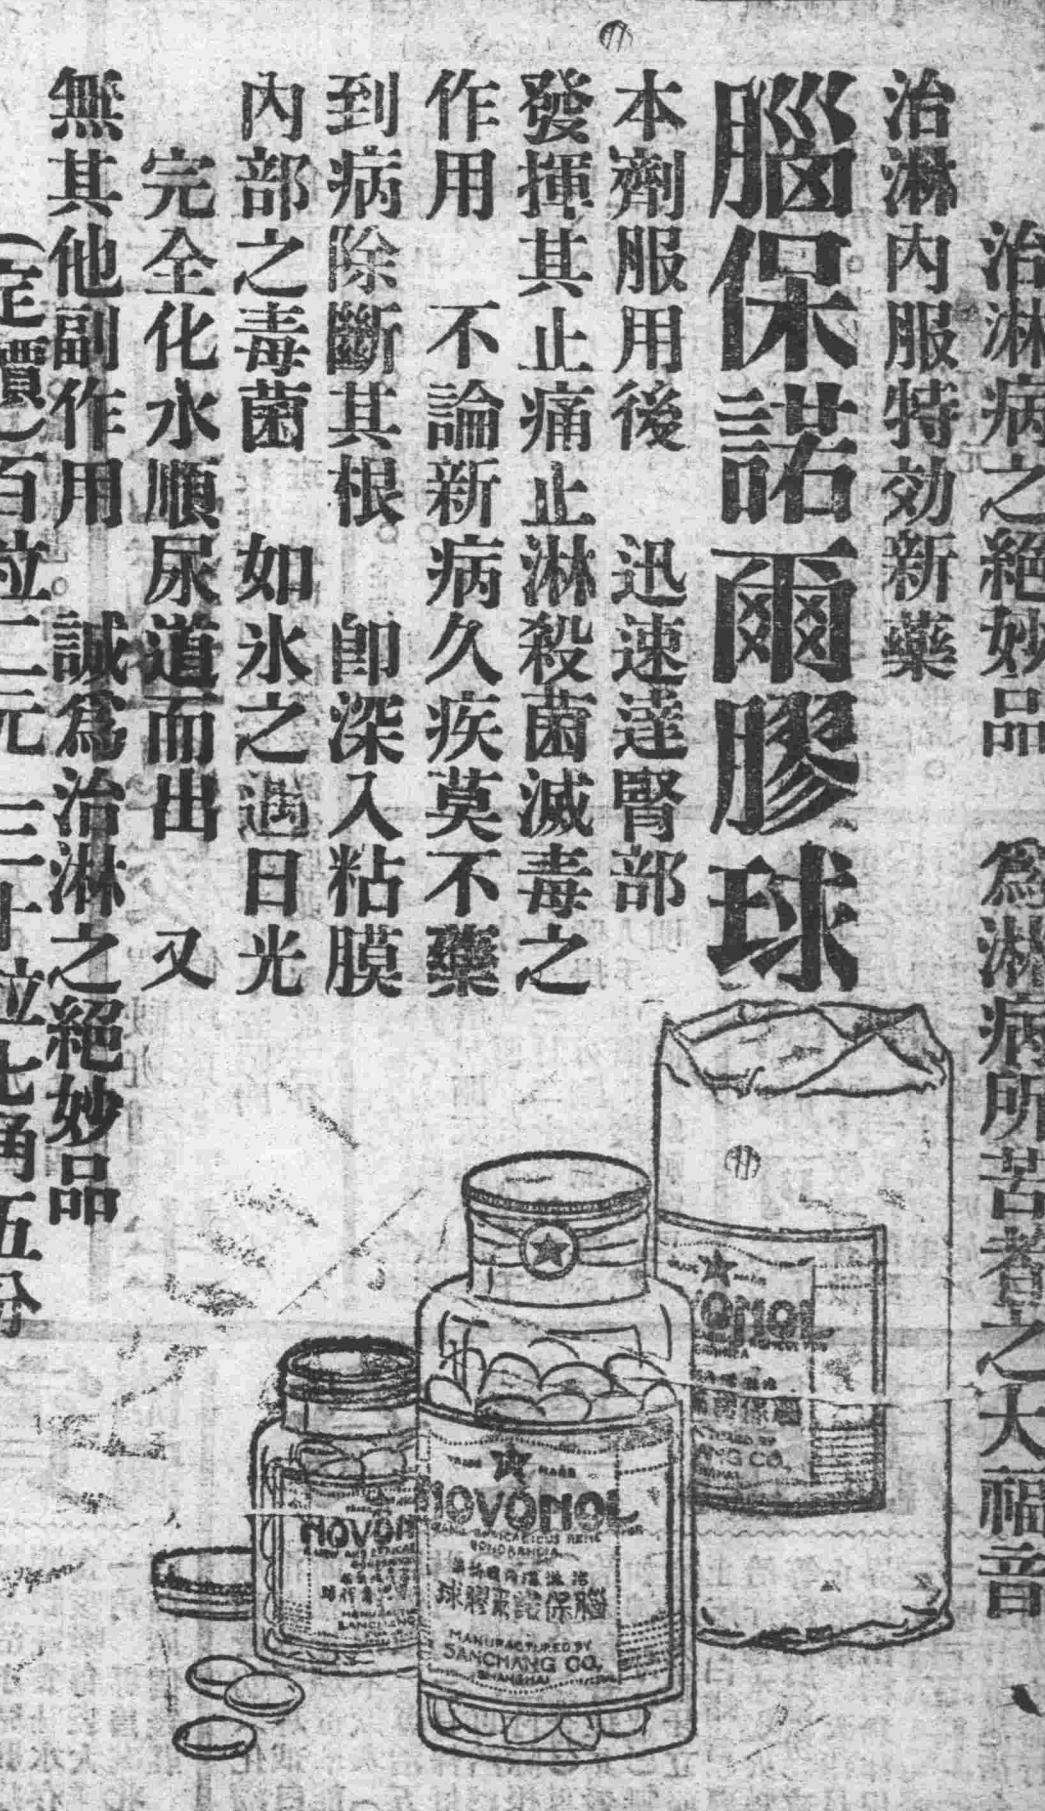 治淋病之絕妙品　為淋病所苦者之大福音
治淋內服特効新藥
腦保諾爾膠球
本劑服用後　迅速達腎部
發揮其止痛止淋殺菌滅毒之
作用　不論新病久疾莫不藥
到病除斷其根。　即深入粘膜
內部之毒菌　如氷之遇日光
完全化水順尿道而出　又
無其他副作用。　誠爲治淋之絕妙品
（定價）百粒二元　三十粒七角五分
TRADE MARK
NOVONOL
GONORRHOEA
MANUFACTURED BY
SANCHANG CO.,
SHANGHAI
TRADE MARK
NOVONOL